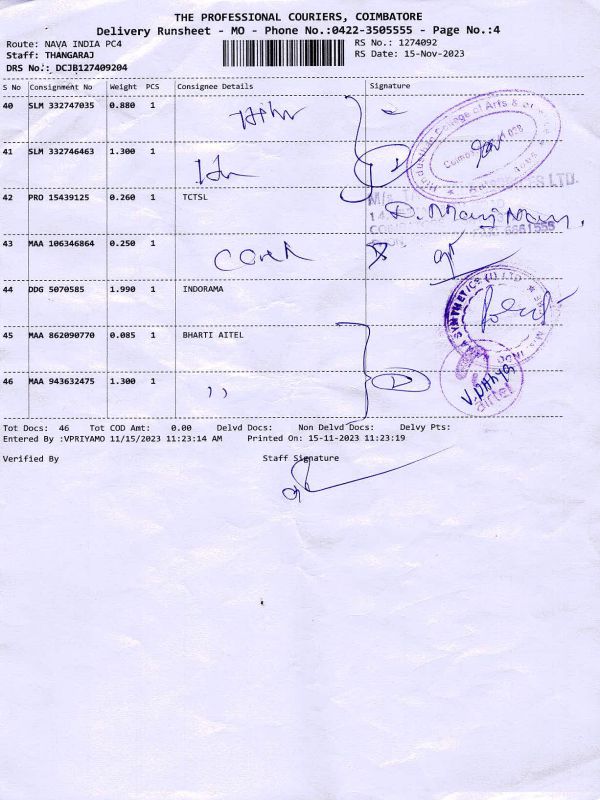 THE PROFESSIONAL COURIERS, COIMBATORE
Delivery Runsheet - MO - Phone No.:0422-3505555 - Page No.:4
Route: NAVA INDIA PC4
RS No.: 1274092
Staff: THANGARAJ
RS Date: 15-Nov-2023
DRS No.: DCJB127409204
S No Consignment No Weight PCS Consignee Details Signature
40 SLM 332747035 0.880 1
41 SLM 332746463 1.300 1
42 PRO 15439125 0.260 1 TCTSL
43 MAA 106346864 0.250 1
44 DDG 5070585 1.990 1 INDORAMA
45 MAA 862090770 0.085 1 BHARTI AITEL
46 MAA 943632475 1.300 1 ,,
airtel
Tot Docs: 46 Tot COD Amt: 0.00 Delvd Docs: Non Delvd Docs: Delvy Pts:
Entered By :VPRIYAMO 11/15/2023 11:23:14 AM Printed On: 15-11-2023 11:23:19
Verified By Staff Signature